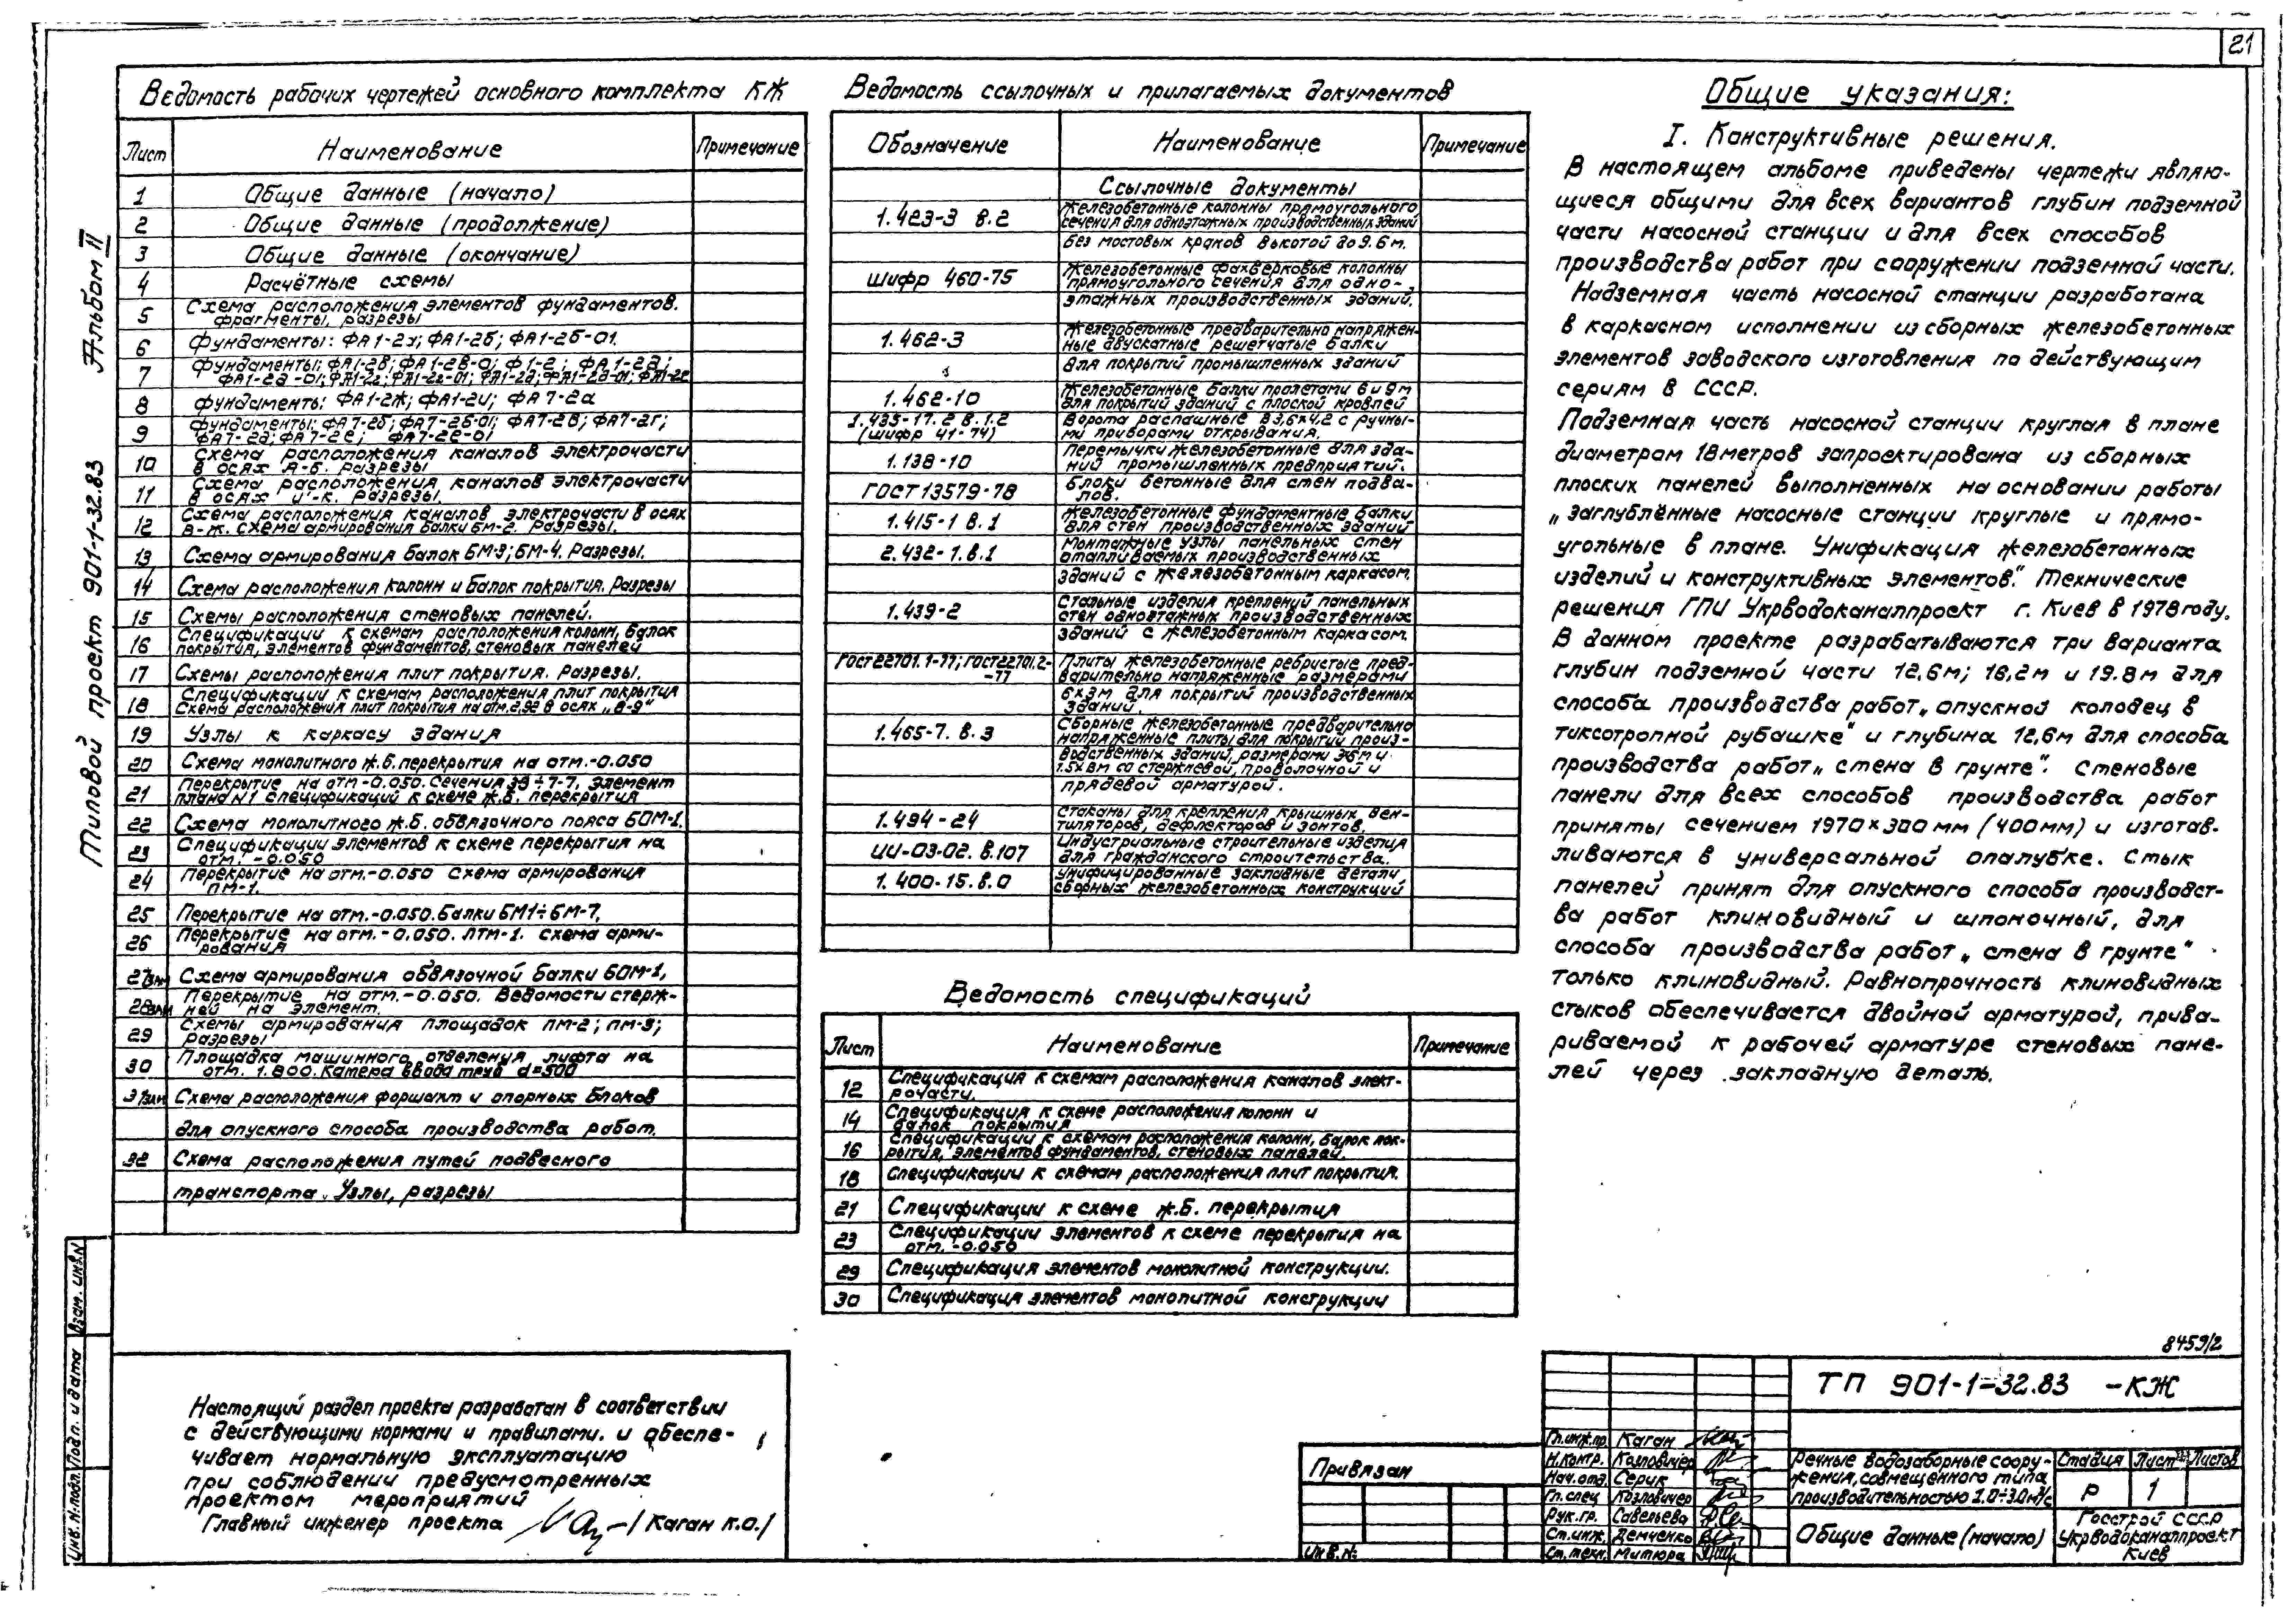 21
Альбом II
Типовой проект 901-1-32.83
Ведомость рабочих чертежей основного комплекта КЖ
Лист Наименование Примечание
1 Общие данные (начало)
2 Общие данные (продолжение)
3 Общие данные (окончание)
4 Расчётные схемы
5 Схема расположения элементов фундаментов.
фрагменты, разрезы
6 Фундаменты: ФА1-2а; ФА1-2б; ФА1-2б-01.
7 Фундаменты: ФА1-2в; ФА1-2в-0; Ф1-2; ФА1-2д;
ФА1-2д-01; ФА1-2г; ФА1-2г-01; ФА1-2д; ФА1-2д-01; ФА1-2е
8 Фундаменты: ФА1-2ж; ФА1-2и; ФА7-2а
9 Фундаменты: ФА7-2б; ФА7-2б-01; ФА7-2в; ФА7-2г;
ФА7-2д; ФА7-2е; ФА7-2е-01
10 Схема расположения каналов электрочасти
в осях А-Б. Разрезы
11 Схема расположения каналов электрочасти
в осях и'-к. Разрезы.
12 Схема расположения каналов электрочасти в осях
в-ж. Схема армирования балки БМ-2. Разрезы.
13 Схема армирования балок БМ-3; БМ-4. Разрезы.
14 Схема расположения колонн и балок покрытия. Разрезы
15 Схемы расположения стеновых панелей.
16 Спецификации к схемам расположения колонн, балок
покрытия, элементов фундаментов, стеновых панелей
17 Схемы расположения плит покрытия. Разрезы.
18 Спецификации к схемам расположения плит покрытия
Схема расположения плит покрытия на отм. 2.92 в осях „8-9"
19 Узлы к каркасу здания
20 Схема монолитного ж.б. перекрытия на отм.-0.050
21 Перекрытие на отм-0.050. Сечения ÷ 7-7, Элемент
плана N1 спецификаций к схеме ж.б. перекрытия
22 Схема монолитного ж.б. обвязочного пояса БОМ-1.
23 Спецификации элементов к схеме перекрытия на
отм. -0.050
24 Перекрытие на отм.-0.050 Схема армирования
ПМ-1.
25 Перекрытие на отм.-0.050. Балки БМ1÷БМ-7.
26 Перекрытие на отм.-0.050. ЛТМ-1. схема арми-
рования
27зам Схема армирования обвязочной балки БОМ-1,
28зам Перекрытие на отм.-0.050. Ведомости стерж-
ней на элемент.
29 Схемы армирования площадок ПМ-2; ПМ-3;
Разрезы
30 Площадка машинного отделения лифта на
отм. 1.800. Камера ввода труб d=500
31зам Схема расположения форшахт и опорных блоков
для опускного способа производства работ.
32 Схема расположения путей подвесного
транспорта. Узлы, разрезы
Ведомость ссылочных и прилагаемых документов
Обозначение Наименование Примечание
Ссылочные документы
1.423-3 в.2 Железобетонные колонны прямоугольного
сечения для одноэтажных производственных зданий
без мостовых кранов высотой до 9.6 м.
шифр 460-75 Железобетонные фахверковые колонны
прямоугольного сечения для одно-
этажных производственных зданий.
1.462-3 Железобетонные предварительно напряжен-
ные двускатные решетчатые балки
для покрытий промышленных зданий
1.462-10 Железобетонные балки пролетами 6 и 9 м
для покрытий зданий с плоской кровлей
1.435-17.2 в.1.2 Ворота распашные в 3,6х4,2 с ручны-
(шифр 41-74) ми приборами открывания.
1.138-10 Перемычки железобетонные для зда-
ний промышленных предприятий.
ГОСТ 13579-78 Блоки бетонные для стен подва-
лов.
1.415-1 в.1 Железобетонные фундаментные балки
для стен производственных зданий
2.432-1.в.1 Монтажные узлы панельных стен
отапливаемых производственных
зданий с железобетонным каркасом.
1.439-2 Стальные изделия креплений панельных
стен одноэтажных производственных
зданий с железобетонным каркасом.
ГОСТ 22701.1-77; ГОСТ 22701.2- Плиты железобетонные ребристые пред-
-77 варительно напряженные размерами
6х3м для покрытий производственных
зданий.
1.465-7. в.3 Сборные железобетонные предварительно
напряженные плиты для покрытий произ-
водственных зданий, размерами 3х6м и
1.5х6м со стержневой, проволочной и
прядевой арматурой.
1.494-24 Стаканы для крепления крышных вен-
тиляторов, дефлекторов и зонтов.
ИИ-03-02. в.107 Индустриальные строительные изделия
для гражданского строительства.
1.400-15.в.0 Унифицированные закладные детали
сборных железобетонных конструкций
Ведомость спецификаций
Лист Наименование Примечание
12 Спецификация к схемам расположения каналов элект-
рочасти.
14 Спецификация к схеме расположения колонн и
балок покрытия
16 Спецификации к схемам расположения колонн, балок пок-
рытия, элементов фундаментов, стеновых панелей.
18 Спецификации к схемам расположения плит покрытия.
21 Спецификации к схеме ж.б. перекрытия
23 Спецификации элементов к схеме перекрытия на
отм. -0.050
29 Спецификация элементов монолитной конструкции.
30 Спецификация элементов монолитной конструкции
Общие указания:
I. Конструктивные решения.
В настоящем альбоме приведены чертежи являю-
щиеся общими для всех вариантов глубин подземной
части насосной станции и для всех способов
производства работ при сооружении подземной части.
Надземная часть насосной станции разработана
в каркасном исполнении из сборных железобетонных
элементов заводского изготовления по действующим
сериям в СССР.
Подземная часть насосной станции круглая в плане
диаметром 18 метров запроектирована из сборных
плоских панелей выполненных на основании работы
„Заглублённые насосные станции круглые и прямо-
угольные в плане. Унификация железобетонных
изделий и конструктивных элементов." Технические
решения ГПИ Укрводоканалпроект г. Киев в 1978 году.
В данном проекте разрабатываются три варианта
глубин подземной части 12,6м; 16,2м и 19.8м для
способа производства работ „опускной колодец в
тиксотропной рубашке" и глубина 12,6м для способа
производства работ „стена в грунте". Стеновые
панели для всех способов производства работ
приняты сечением 1970×300 мм (400мм) и изготав-
ливаются в универсальной опалубке. Стык
панелей принят для опускного способа производст-
ва работ клиновидный и шпоночный, для
способа производства работ „стена в грунте"
только клиновидный. Равнопрочность клиновидных
стыков обеспечивается двойной арматурой, прива-
риваемой к рабочей арматуре стеновых пане-
лей через закладную деталь.
Настоящий раздел проекта разработан в соответствии
с действующими нормами и правилами. и обеспе-
чивает нормальную эксплуатацию
при соблюдении предусмотренных
проектом мероприятий
Главный инженер проекта /Каган К.О./
Взам. инв.N
Подп. и дата
Инв. N подл.
Привязан
Инв. N:
8459/2
ТП 901-1-32.83 -КЖ
Гл.инж.пр. Каган
Н.контр. Козловичер
Нач.отд. Серик
Гл.спец Козловичер
Рук.гр. Савельева
Ст.инж. Демченко
Ст.техн. Митюра
Речные водозаборные соору-
жения, совмещенного типа
производительностью 1.0÷3.0 м³/с
Стадия Лист Листов
Р 1
Общие данные (начало)
Госстрой СССР
Укрводоканалпроект
Киев